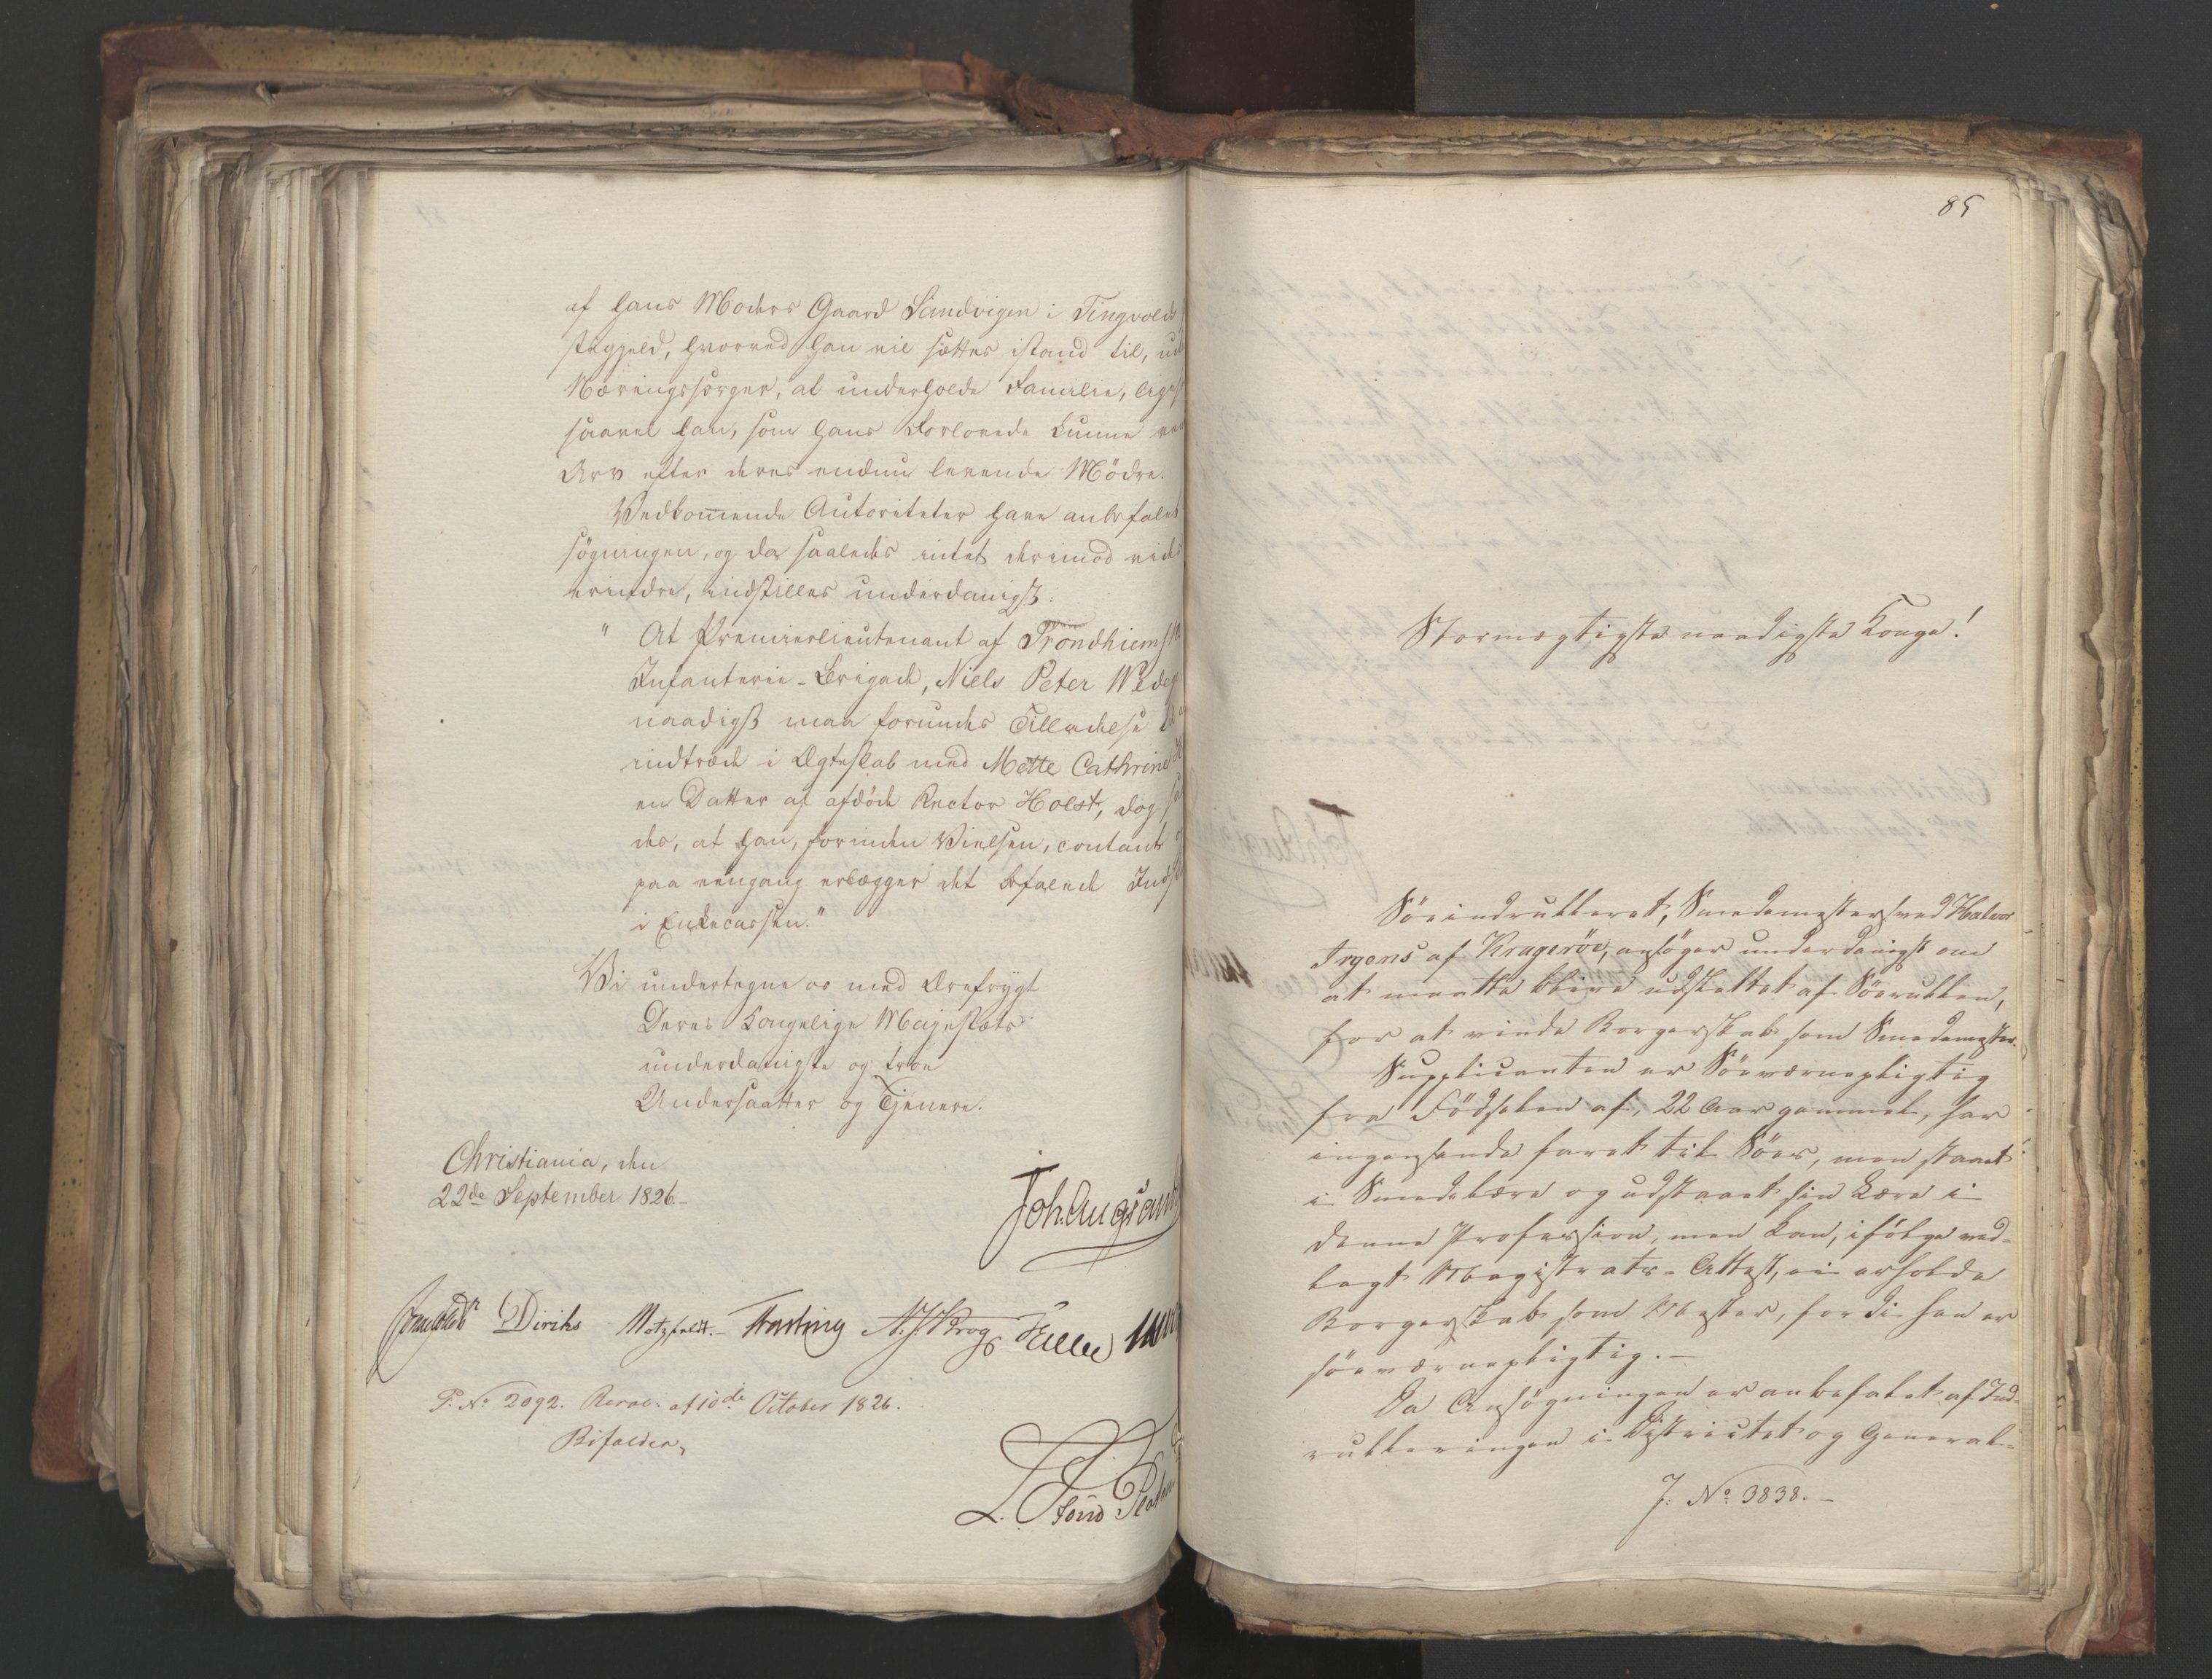 af hans Moders Gaard Sandvigen i Tingvolds
stegjeld, hvorved han vil sættes istand til, ud
Næringssorger, at underholde Familie, lige
saavel han, som hans Forlovede kunne ven
Arv efter deres endnu levende Mödre.
Vedkommende Autoriteter have anbefalet
søgningen, og da saaledes intet derimod vides
erindre, indstilles underdanigst:
" At Premierlieutenant af Trondhiemske
Infanterie-Brigade, Niels Peter
naadigst maa forundes Tilladelse
indtræde i Ægteskab med Mette Cathrine
en Datter af afdöde Rector Holst, dog
des, at han, forinden Vielsen, contant
paa eengang erlægger det befalede Ind
i Enkecassen."
Vi undertegne os med Ærefrygt
Deres Kongelige Majestæts
underdanigste og troe
Undersaatter og Tjenere.
Christiania, den
22de September 1826.-
Joh. Aug. Sand
Diriks Motzfeldt.- Fasting N. J. Krog
P. No 2092. Resol. af 10de October 1826.
Bifaldes,
85
Stormægtigste naadigste Konge!
Söeindrulleret, Smedemestersvend Halvor
Irgens af Krageröe, ansöger underdanigst om
at maatte blive udslettet af Söerullen,
for at vinde Borgerskab som Smedemester.
Supplicanten er Söeværnepligtig
fra Födselen af, 22 Aar gammel, har
ingensinde faret til Söes, men staaet
i Smedelære og udstaaet sin Lære i
denne Profession, men kan, ifölge ved-
lagt Magistrats-Attest, ei erholde
Borgerskab som Mester, fordi han er
söeværnepligtig.-
Da Ansögningen er anbefalet af Ind-
rulleringen i Districtet og General-
J: No 3838.-